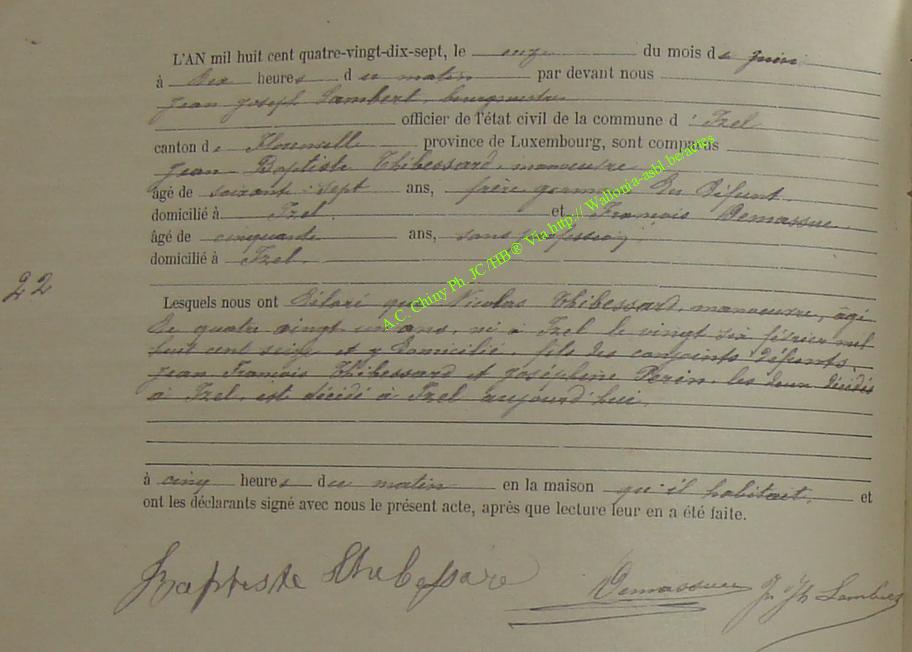 L'AN mil huit cent quatre-vingt-dix-sept, le onze du mois de juin
à dix heures du matin par devant nous
Jean Joseph Lambert, bourgmestre
officier de l'état civil de la commune d'Izel
canton de Florenville province de Luxembourg, sont comparus
Jean Baptiste Thibessard, manoeuvre
âgé de soixante sept ans, frère germain du défunt
domicilié à Izel et François Demassue
âgé de cinquante ans, sans profession
domicilié à Izel
22
Lesquels nous ont déclaré que Nicolas Thibessard, manoeuvre, âgé
de quatre vingt un ans, né à Izel le vingt six février mil
huit cent seize et y domicilié, fils des conjoints défunts
Jean François Thibessard et Joséphine Perin, les deux décédés
à Izel, est décédé à Izel aujourd'hui
à cinq heures du matin en la maison qu'il habitait, et
ont les déclarants signé avec nous le présent acte, après que lecture leur en a été faite.
Baptiste Thibessard Demassue J. Jh Lambert
A.C. Chiny Ph. JC/HB® Via http:// Wallonia-asbl.be/actes